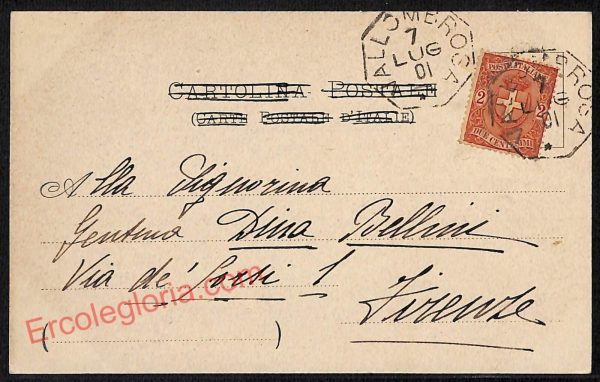 VALLOMBROSA
7
LUG
01
POSTE ITALIANE
2 2
DUE CENTESIMI
CARTOLINA POSTALE
(CARTE POSTALE D'ITALIE)
Alla Signorina
Gentma Dina Bellini
Via de' Corsi 1
Firenze
Ercolegloria.com
( )